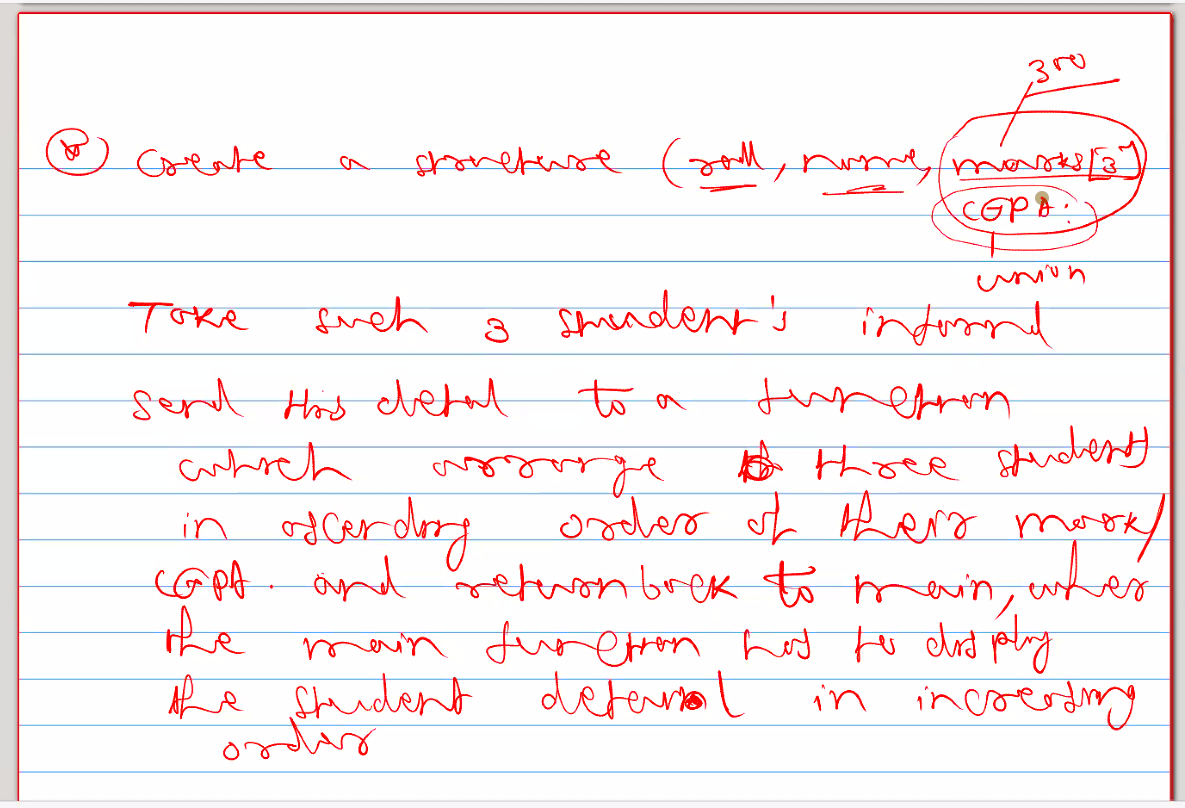 300
Create a structure (roll, name, marks[3]
CGPA:
union
Take such 3 student's informal
send this detail to a function
which arrange three student
in ascending order of their mark/
CGPA. and return back to main, wher
the main function has to display
the student detail in increasing
order